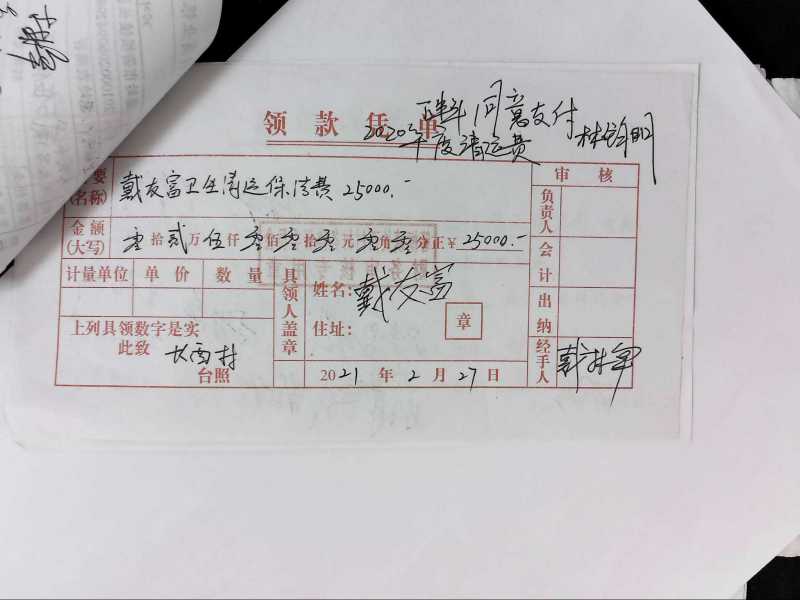 领款凭单
同意支付
2020年度清运费
要 审核
(名称) 戴友富卫生清运保洁费 25000.- 负责人
金额
(大写) 零拾贰万伍仟零佰零拾零元零角零分正¥ 25000.- 会计
计量单位 单价 数量 具领人盖章 姓名:戴友富
住址: 章 出纳
上列具领数字是实
此致 大西村
台照 2021年2月27日 经手人